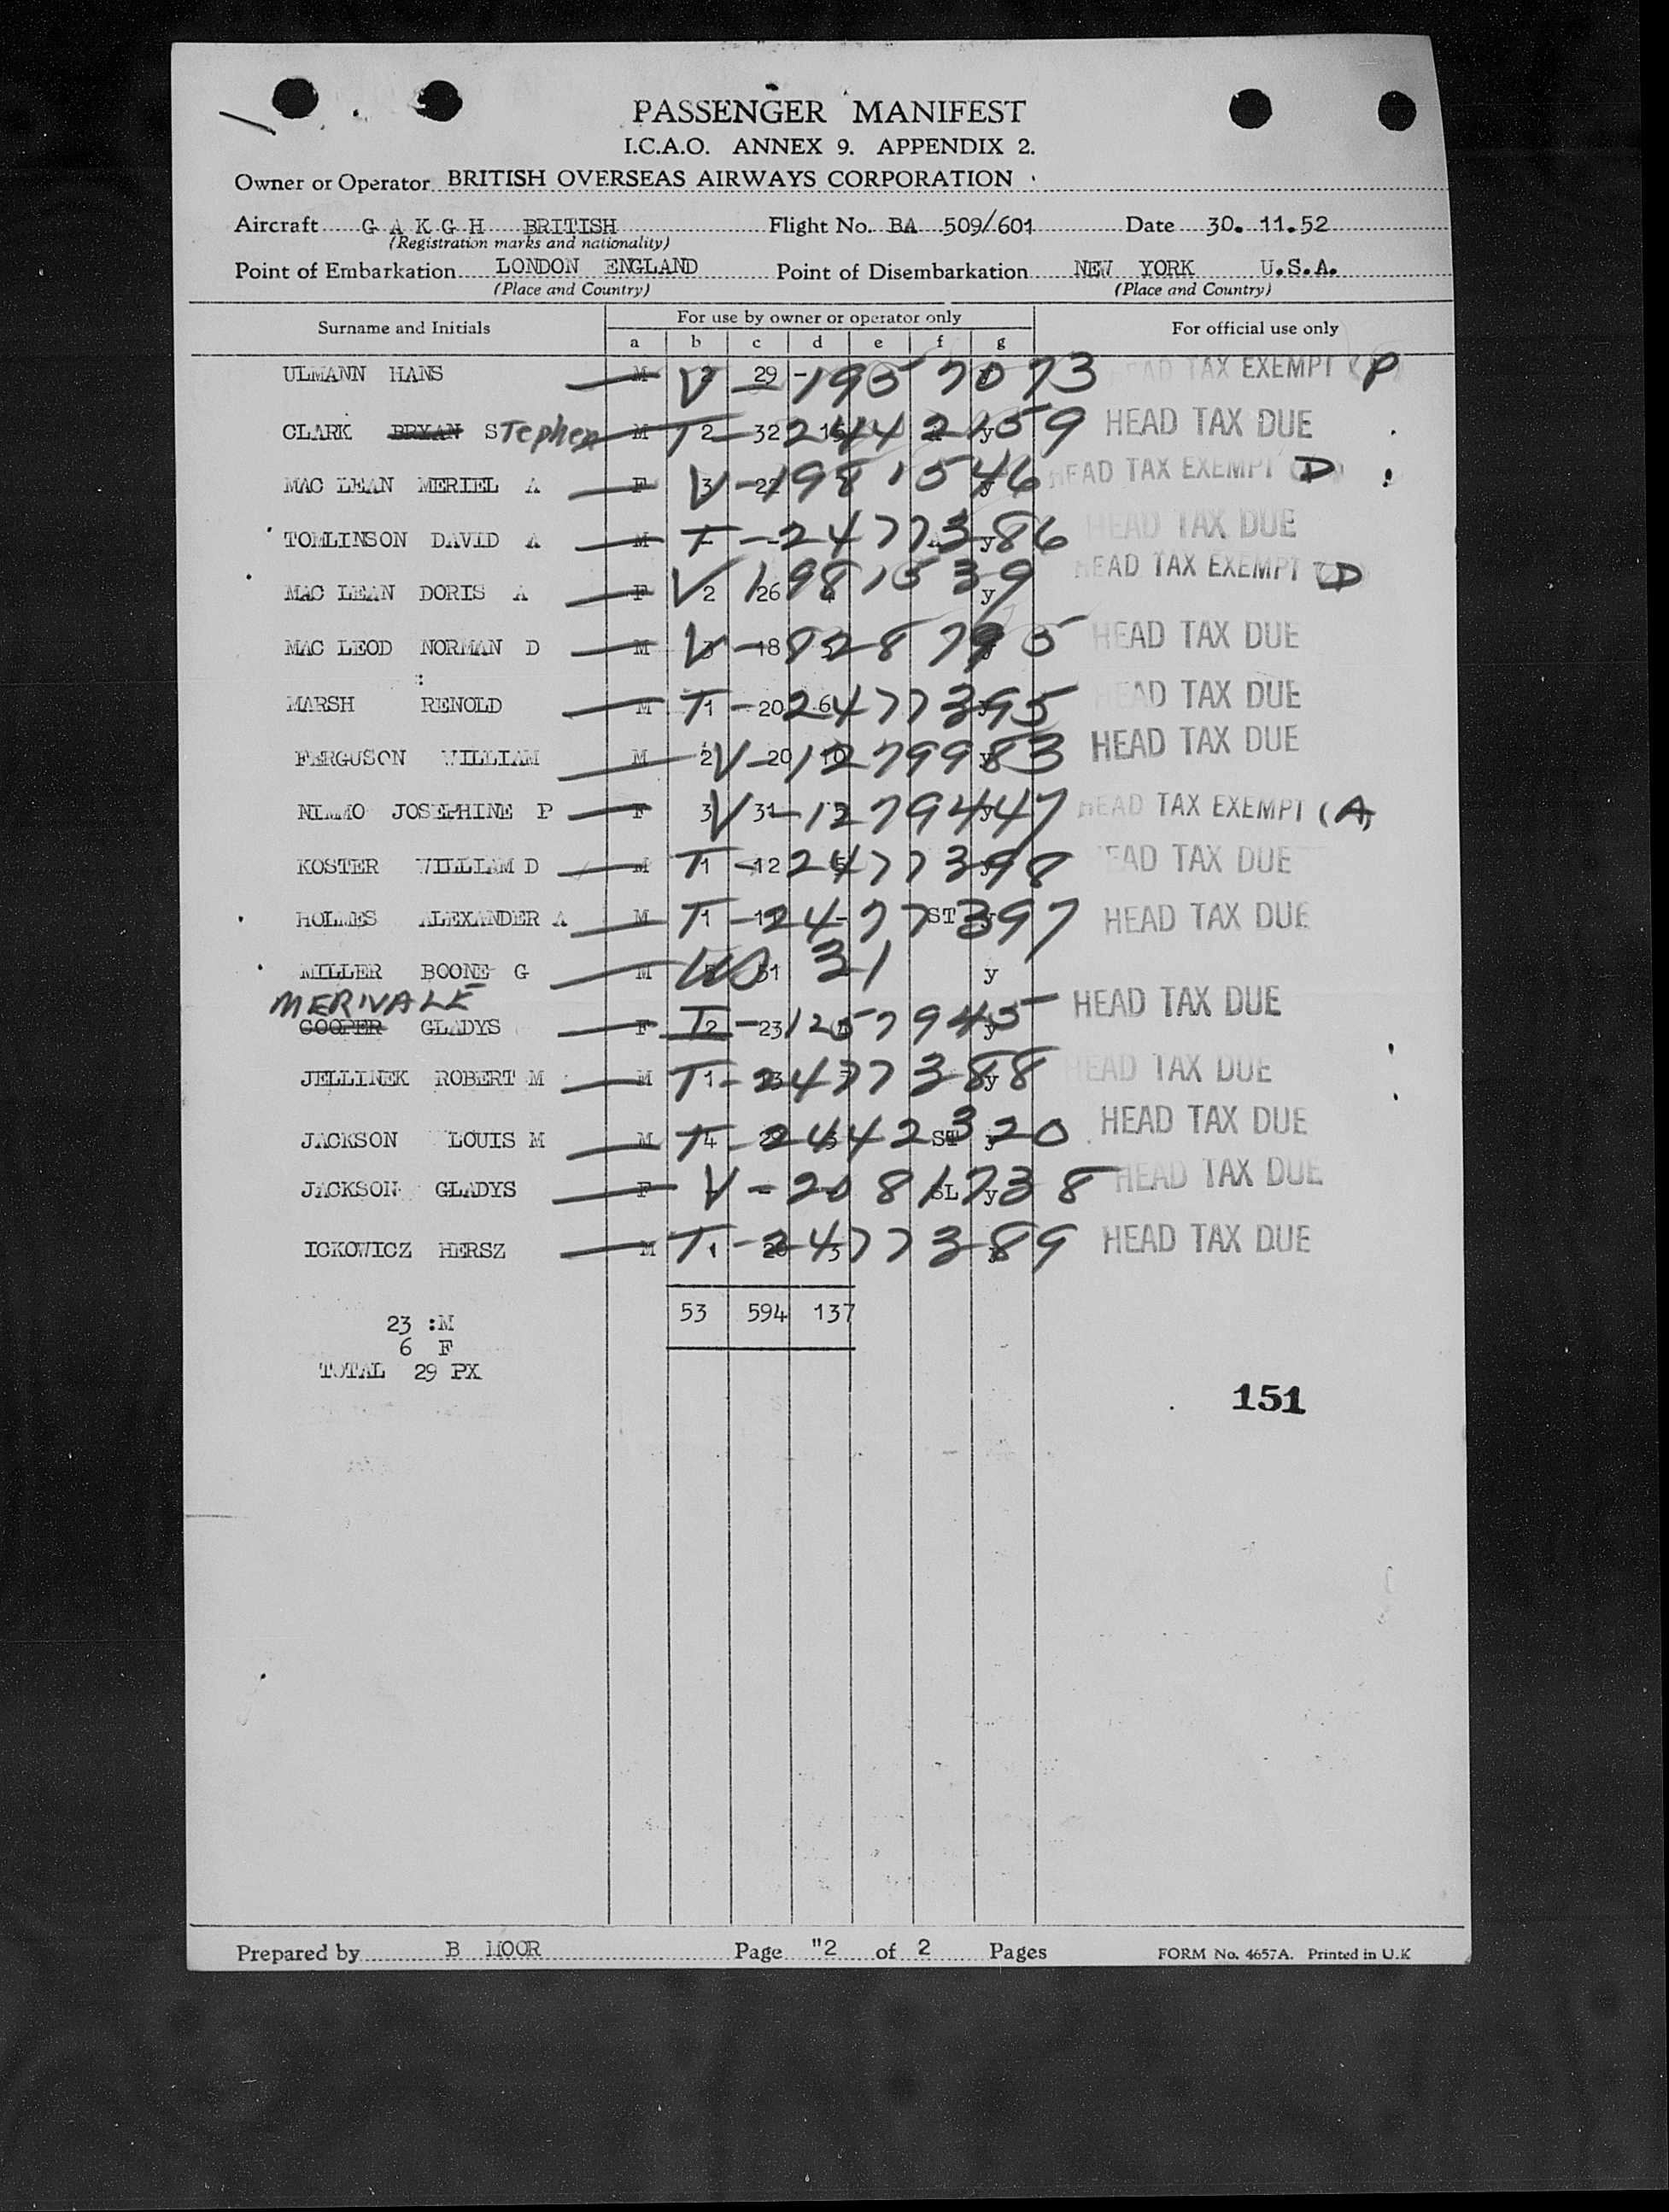 PASSENGER MANIFEST
I.C.A.O. ANNEX 9. APPENDIX 2.
Owner or Operator BRITISH OVERSEAS AIRWAYS CORPORATION
Aircraft G A K G H BRITISH Flight No. BA 509/601 Date 30. 11.52
(Registration marks and nationality)
Point of Embarkation LONDON ENGLAND Point of Disembarkation NEW YORK U.S.A.
(Place and Country) (Place and Country)
Surname and Initials For use by owner or operator only For official use only
a b c d e f g
ULMANN HANS M V 2 29 - 1957073 HEAD TAX EXEMPT (P)
CLARK BRYAN STephen M T 2 - 32 2442159 y HEAD TAX DUE
MAC LEAN MERIEL A F V 3 - 22 1981546 y HEAD TAX EXEMPT (D)
TOMLINSON DAVID A M T - 2477386 y HEAD TAX DUE
MAC LEAN DORIS A F V 2 26 1981539 y HEAD TAX EXEMPT (D)
MAC LEOD NORMAN D M V - 18 828795 HEAD TAX DUE
MARSH RENOLD M T 1 - 20 6 2477395 HEAD TAX DUE
FERGUSON WILLIAM M 2 V - 20 10 1279983 y HEAD TAX DUE
NIMMO JOSEPHINE P F 3 V 31 - 1279447 y HEAD TAX EXEMPT (A)
KOSTER WILLIAM D M T 1 - 12 2477398 HEAD TAX DUE
HOLMES ALEXANDER A M T 1 - 2477397 ST HEAD TAX DUE
MILLER BOONE G M US 31 y
MERIVALE
COOPER GLADYS F T 2 - 23 1257945 y HEAD TAX DUE
JELLINEK ROBERT M M T 1 - 2477388 y HEAD TAX DUE
JACKSON LOUIS M M T 4 - 2442320 ST y HEAD TAX DUE
JACKSON GLADYS F V - 2081738 SL y HEAD TAX DUE
ICKOWICZ HERSZ M T 1 - 2477389 HEAD TAX DUE
53 594 137
23 :M
6 F
TOTAL 29 PX
151
Prepared by B MOOR Page "2 of 2 Pages FORM No. 4657A. Printed in U.K